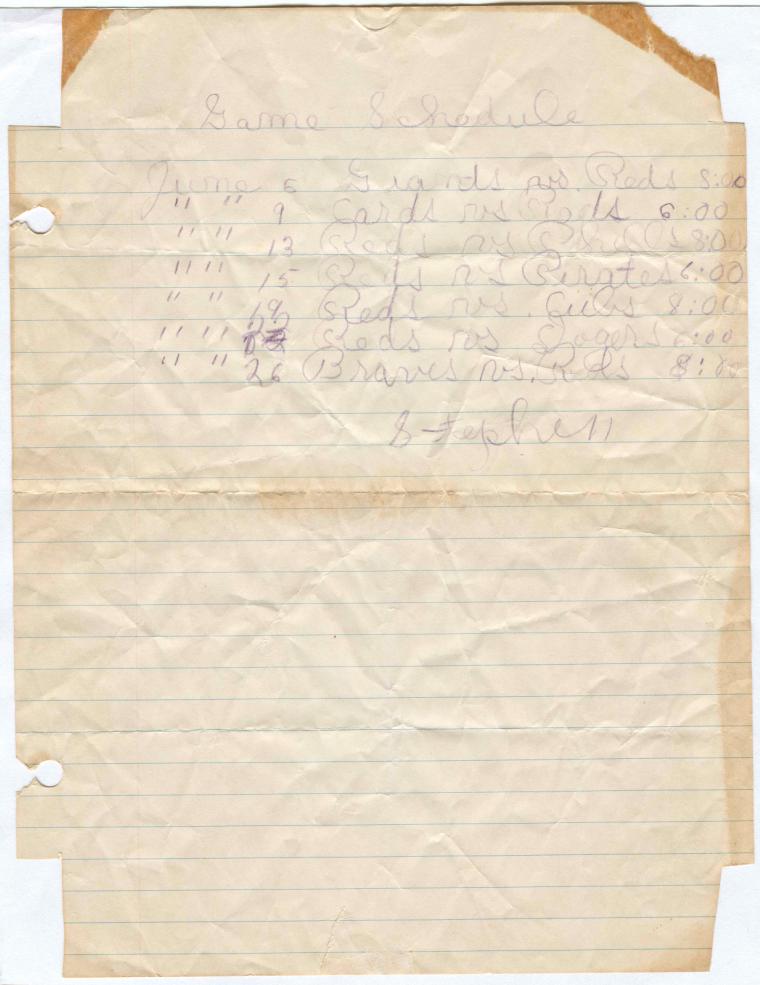 Game Schedule
June 6 Giands vs. Reds 8:00
" " 9 Cards vs Reds 6:00
" " 13 Reds vs Phills 8:00
" " 15 Reds vs Pirates 6:00
" " Reds vs. Cubs 8:00
" " Reds vs Dogers 6:00
" " 26 Braves vs. Reds 8:00
Stephen